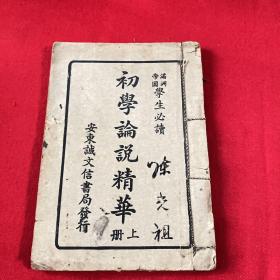 滿洲
帝國
學生必讀
光祖
初學論說精華
上册
安東誠文信書局發行